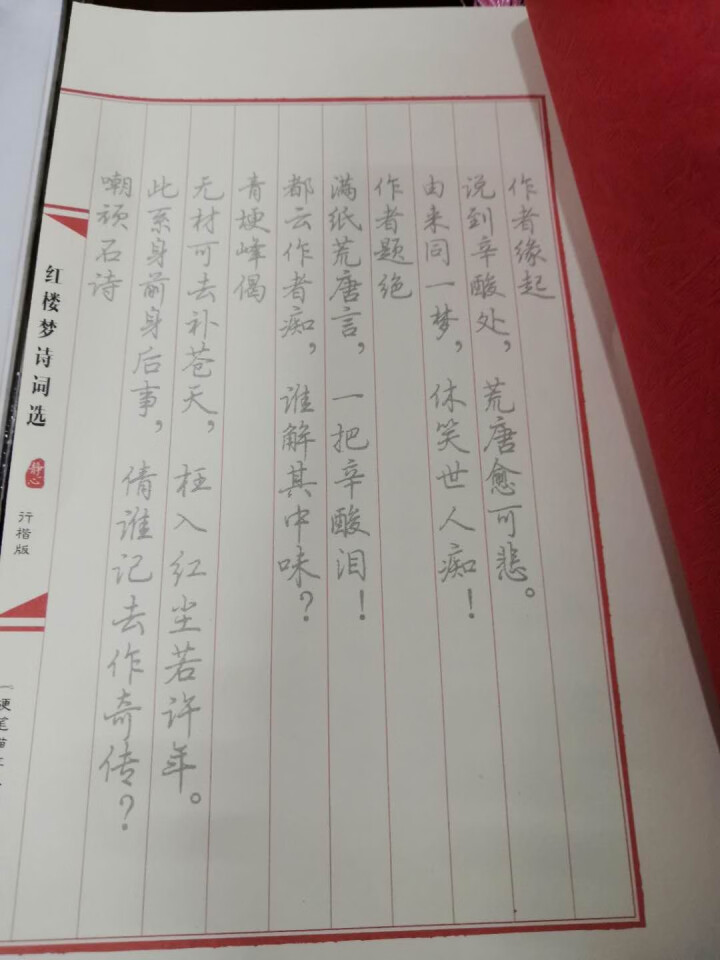 作者缘起
说到辛酸处，荒唐愈可悲。
由来同一梦，休笑世人痴！
作者题绝
满纸荒唐言，一把辛酸泪！
都云作者痴，谁解其中味？
青埂峰偈
无材可去补苍天，枉入红尘若许年。
此系身前身后事，倩谁记去作奇传？
嘲顽石诗
红楼梦诗词选
静心
行楷版